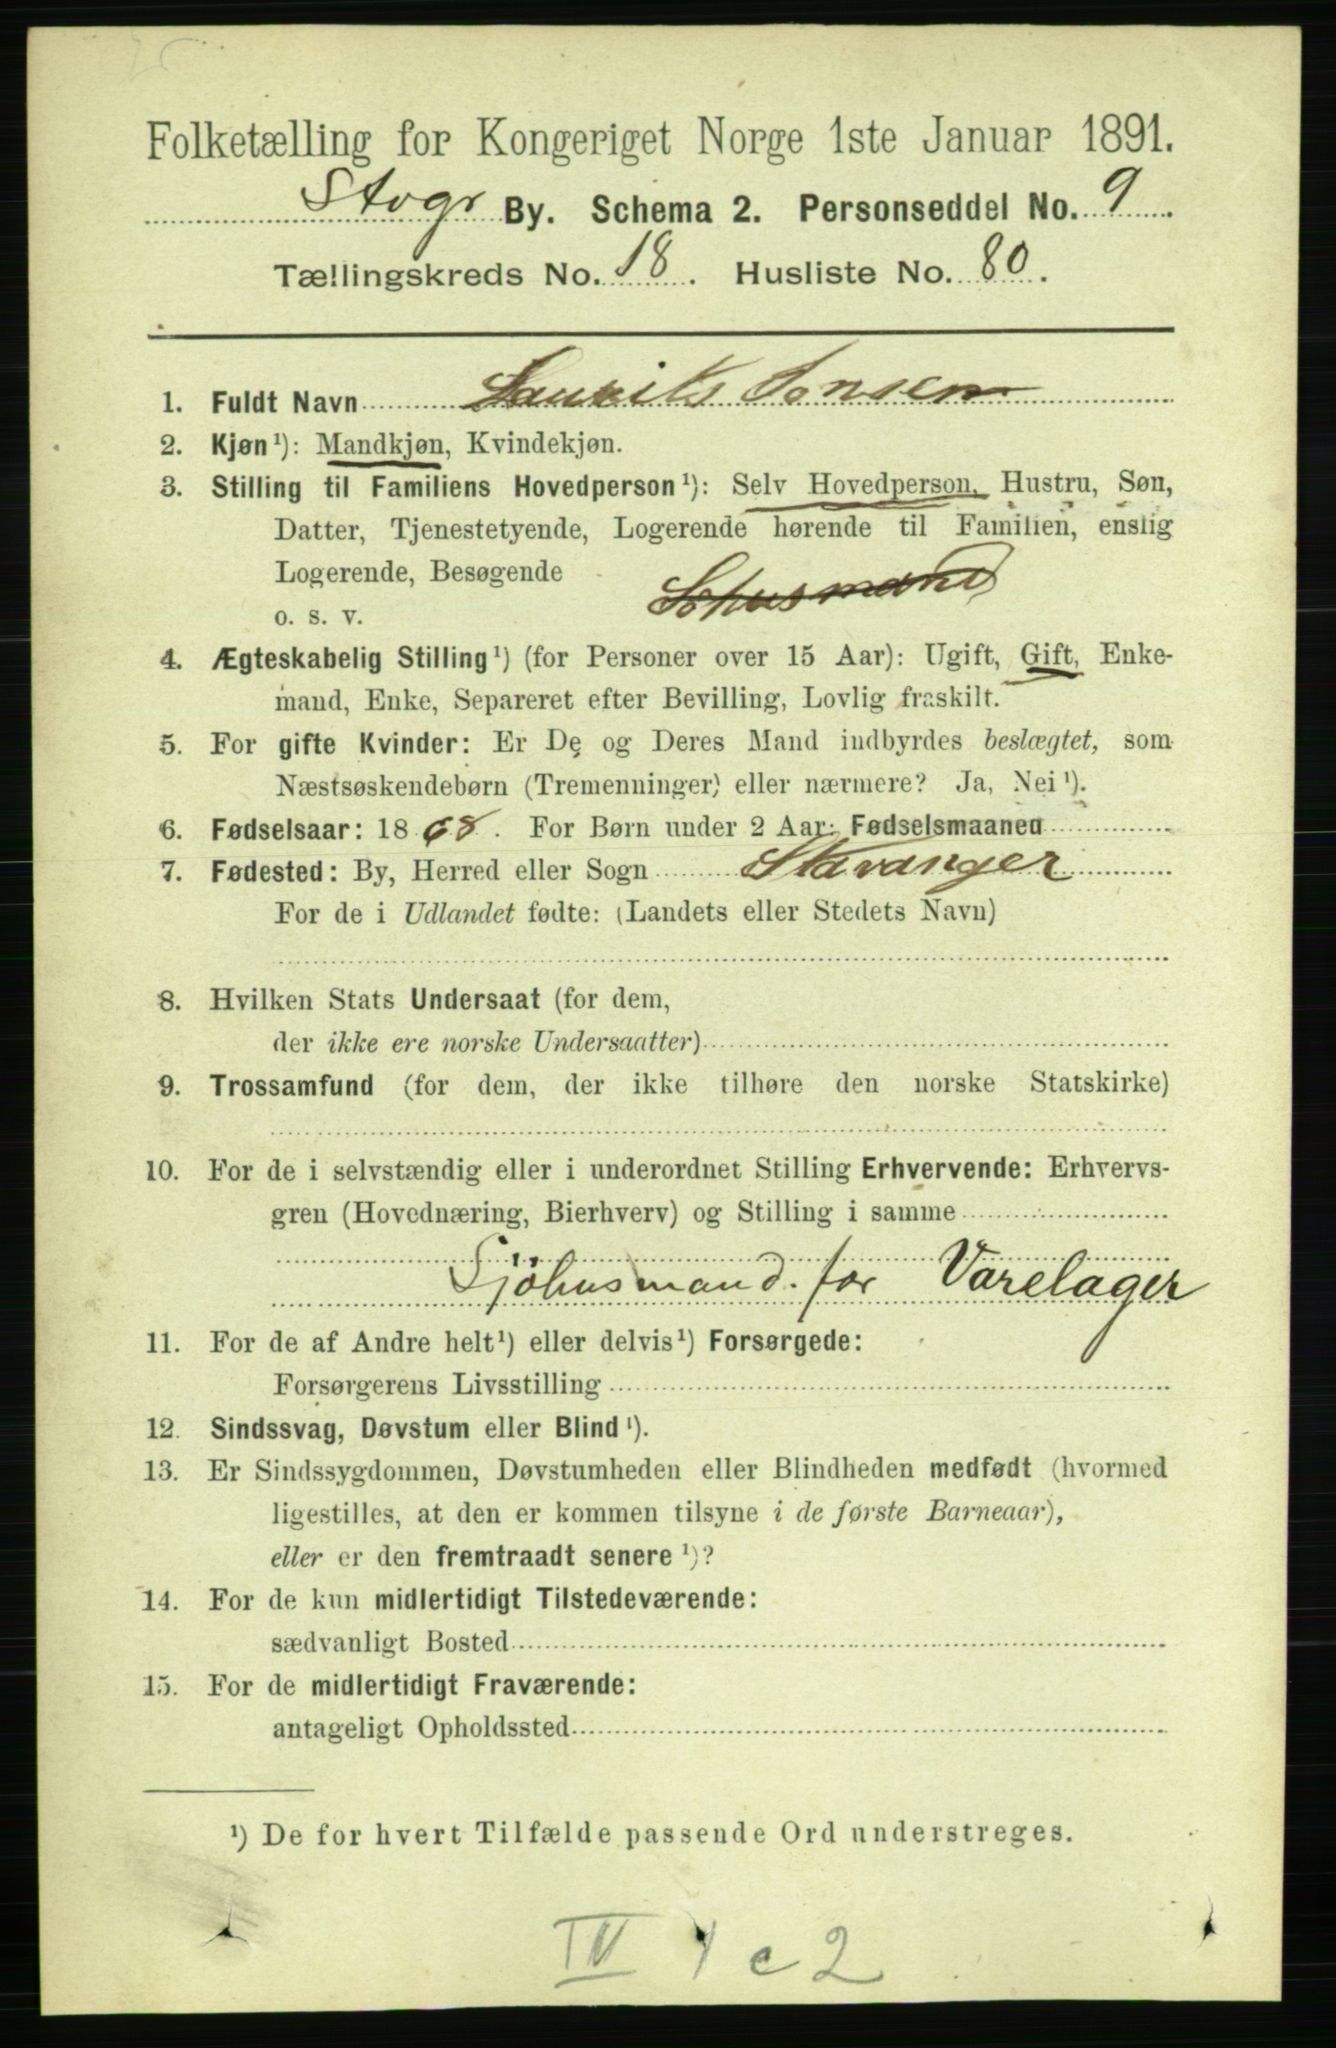 Folketælling for Kongeriget Norge 1ste Januar 1891.
Stvgr By. Schema 2. Personseddel No. 9.
Tællingskreds No. 18. Husliste No. 80.
1. Fuldt Navn Laurits Jonsen
2. Kjøn¹): Mandkjøn, Kvindekjøn.
3. Stilling til Familiens Hovedperson¹): Selv Hovedperson, Hustru, Søn,
Datter, Tjenestetyende, Logerende hørende til Familien, enslig
Logerende, Besøgende
o. s. v. Sohusmand
4. Ægteskabelig Stilling¹) (for Personer over 15 Aar): Ugift, Gift, Enke-
mand, Enke, Separeret efter Bevilling, Lovlig fraskilt.
5. For gifte Kvinder: Er De og Deres Mand indbyrdes beslægtet, som
Næstsøskendebørn (Tremenninger) eller nærmere? Ja, Nei¹).
6. Fødselsaar: 1868. For Børn under 2 Aar: Fødselsmaaned
7. Fødested: By, Herred eller Sogn Stavanger
For de i Udlandet fødte: (Landets eller Stedets Navn)
8. Hvilken Stats Undersaat (for dem,
der ikke ere norske Undersaatter)
9. Trossamfund (for dem, der ikke tilhøre den norske Statskirke)
10. For de i selvstændig eller i underordnet Stilling Erhvervende: Erhvervs-
gren (Hovednæring, Bierhverv) og Stilling i samme
Sjöhusmand. for Varelager
11. For de af Andre helt¹) eller delvis¹) Forsørgede:
Forsørgerens Livsstilling
12. Sindssvag, Døvstum eller Blind¹).
13. Er Sindssygdommen, Døvstumheden eller Blindheden medfødt (hvormed
ligestilles, at den er kommen tilsyne i de første Barneaar),
eller er den fremtraadt senere¹)?
14. For de kun midlertidigt Tilstedeværende:
sædvanligt Bosted
15. For de midlertidigt Fraværende:
antageligt Opholdssted
¹) De for hvert Tilfælde passende Ord understreges.
IV 1 c 2